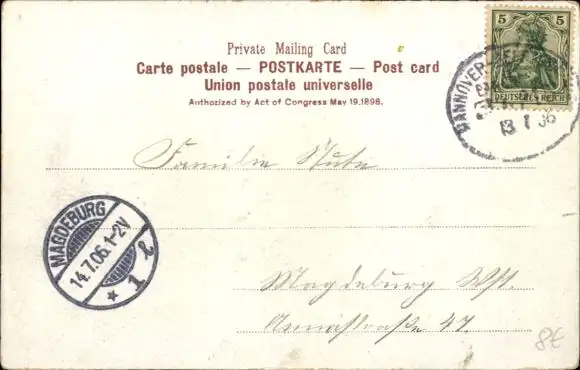 Private Mailing Card
Carte postale — POSTKARTE — Post card
Union postale universelle
Authorized by Act of Congress May 19, 1898.
5 5
DEUTSCHES REICH
HANNOVER
13 7 06
Familie Stute
MAGDEBURG
14.7.06.1-2V
* 1 l
Magdeburg Wst.
Annastraße 47.
8€